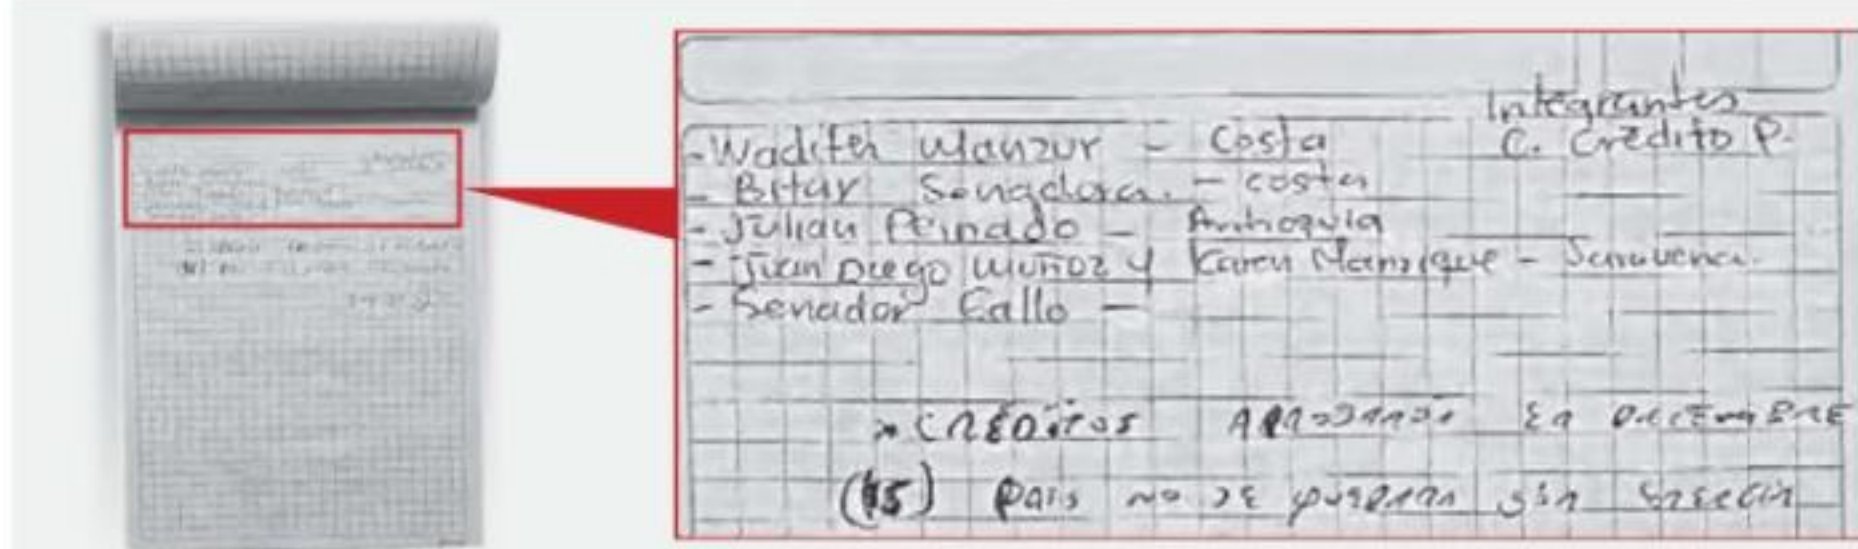 Integrantes
C. Crédito P.
- Wadith Manzur - Costa
- Bitar Sengdora. - costa
- Julian Peinado - Antioquia
- Juan Diego Muñoz y Karen Manrique -
- Senador Gallo -
CREDITOS En DICIEMBRE
(15) Pais no se sin